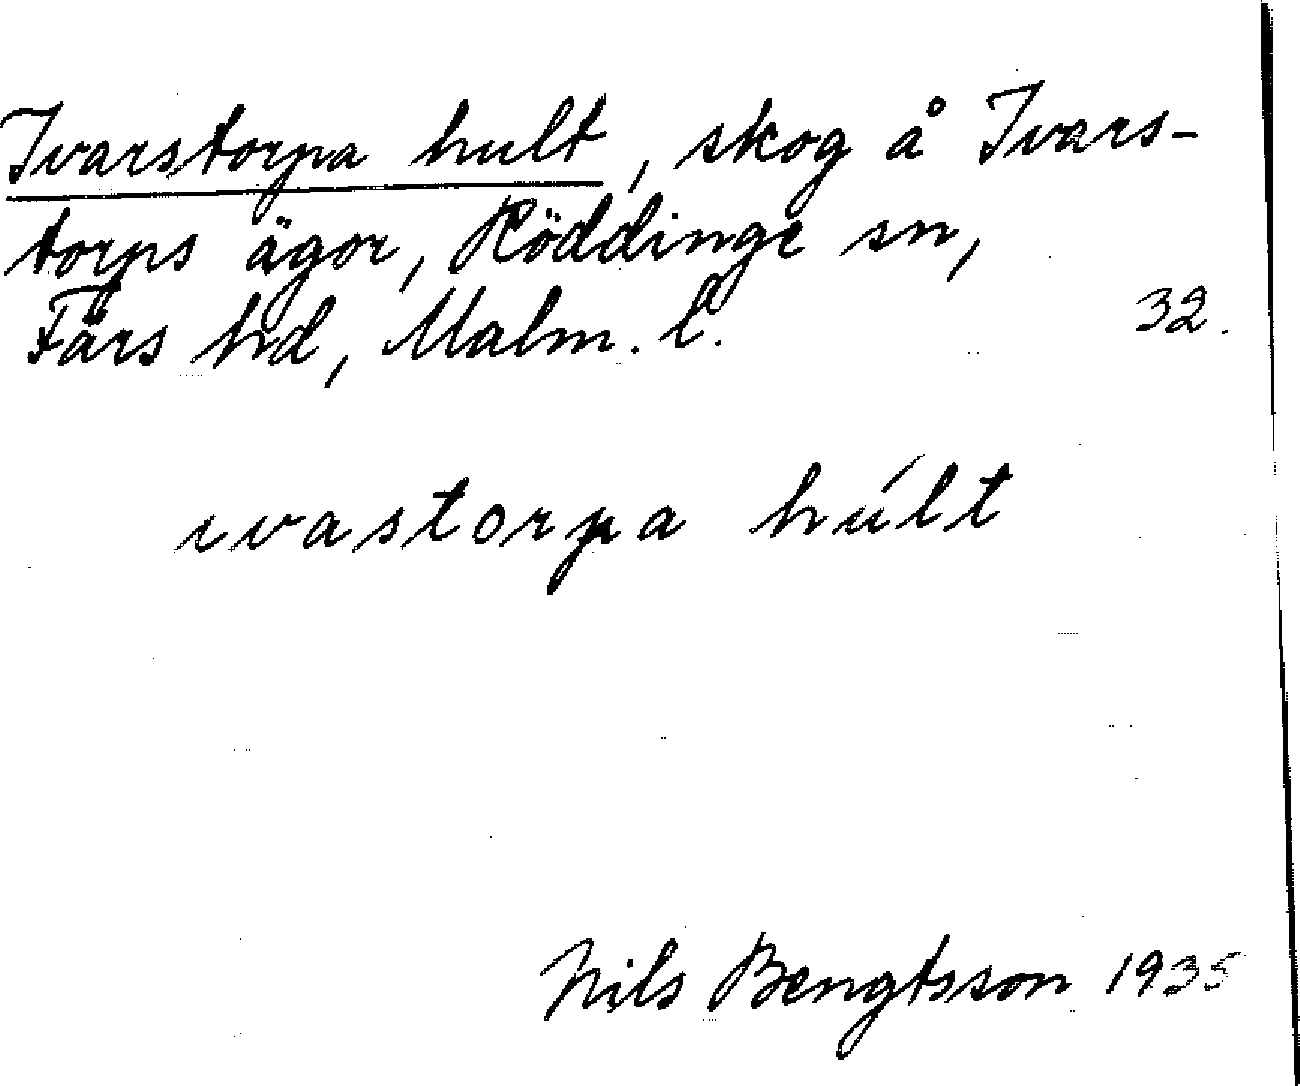 Ivarstorpa hult, skog å Ivars-
torps ägor, Röddinge sn,
Färs hd, Malm. l. 32.
ivastorpa húlt
Nils Bengtsson 1935